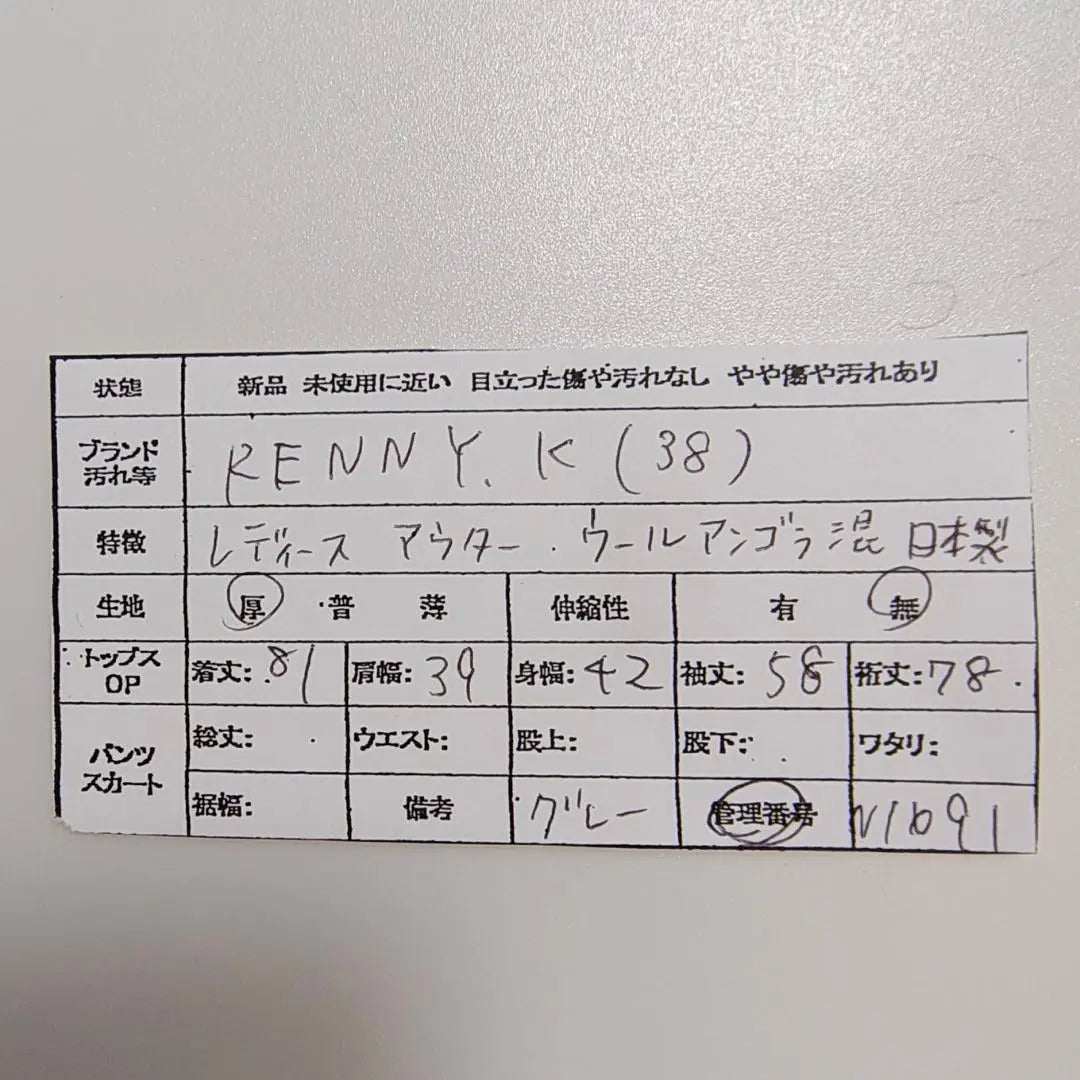 状態 新品 未使用に近い 目立った傷や汚れなし やや傷や汚れあり
ブランド
汚れ等 RENNY. K (38)
特徴 レディース アウター . ウールアンゴラ混 日本製
生地 厚 ・普 薄 伸縮性 有 無
トップス
OP 着丈: 81 肩幅: 39 身幅: 42 袖丈: 58 裄丈: 78
パンツ
スカート 総丈: ウエスト: 股上: 股下: ワタリ:
裾幅: 備考 グレー 管理番号 N1691